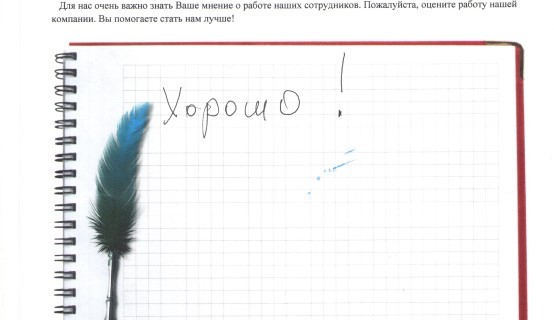 Для нас очень важно знать Ваше мнение о работе наших сотрудников. Пожалуйста, оцените работу нашей
компании. Вы помогаете стать нам лучше!
Хорошо !